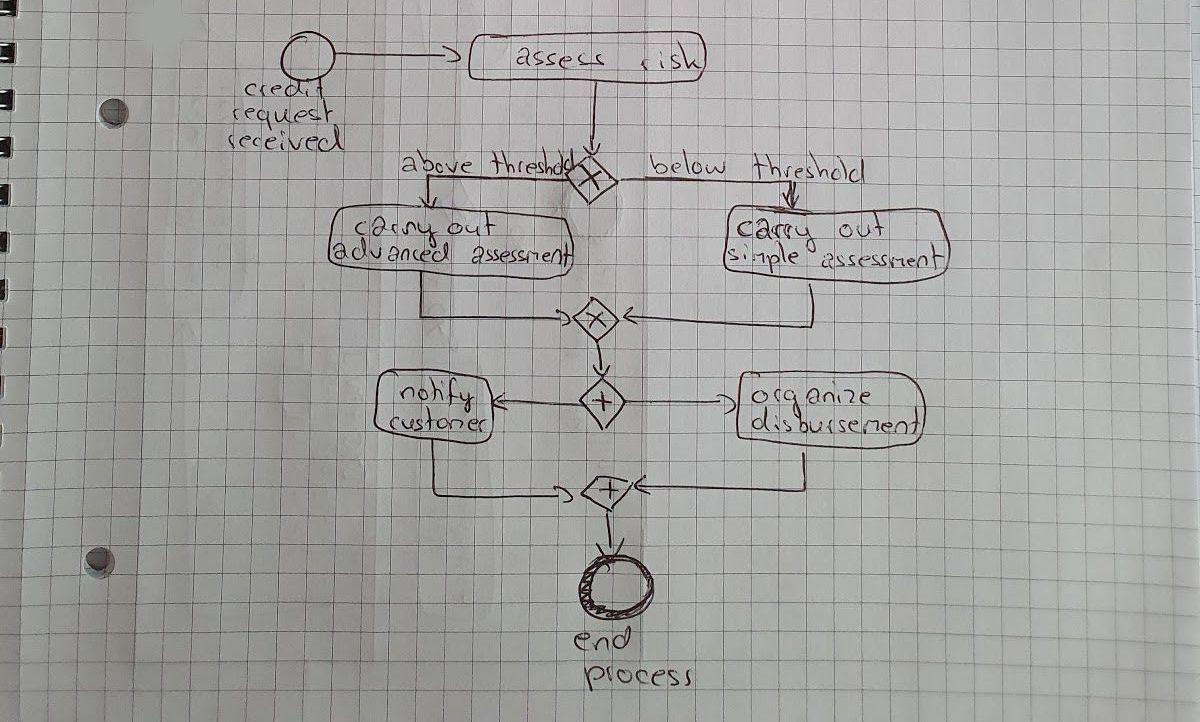 assess risk
credit
request
received
above threshold
below threshold
carry out
advanced assessment
carry out
simple assessment
notify
customer
organize
disbursement
end
process